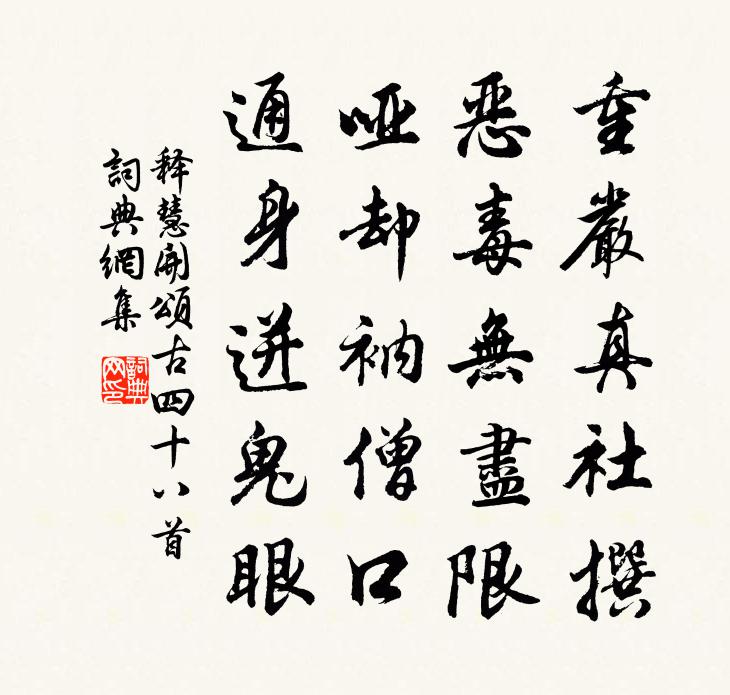 重嚴真社撰
惡毒無盡限
啞却衲僧口
通身迸鬼眼
释慧開頌古四十八首
詞典網集
詞典网印